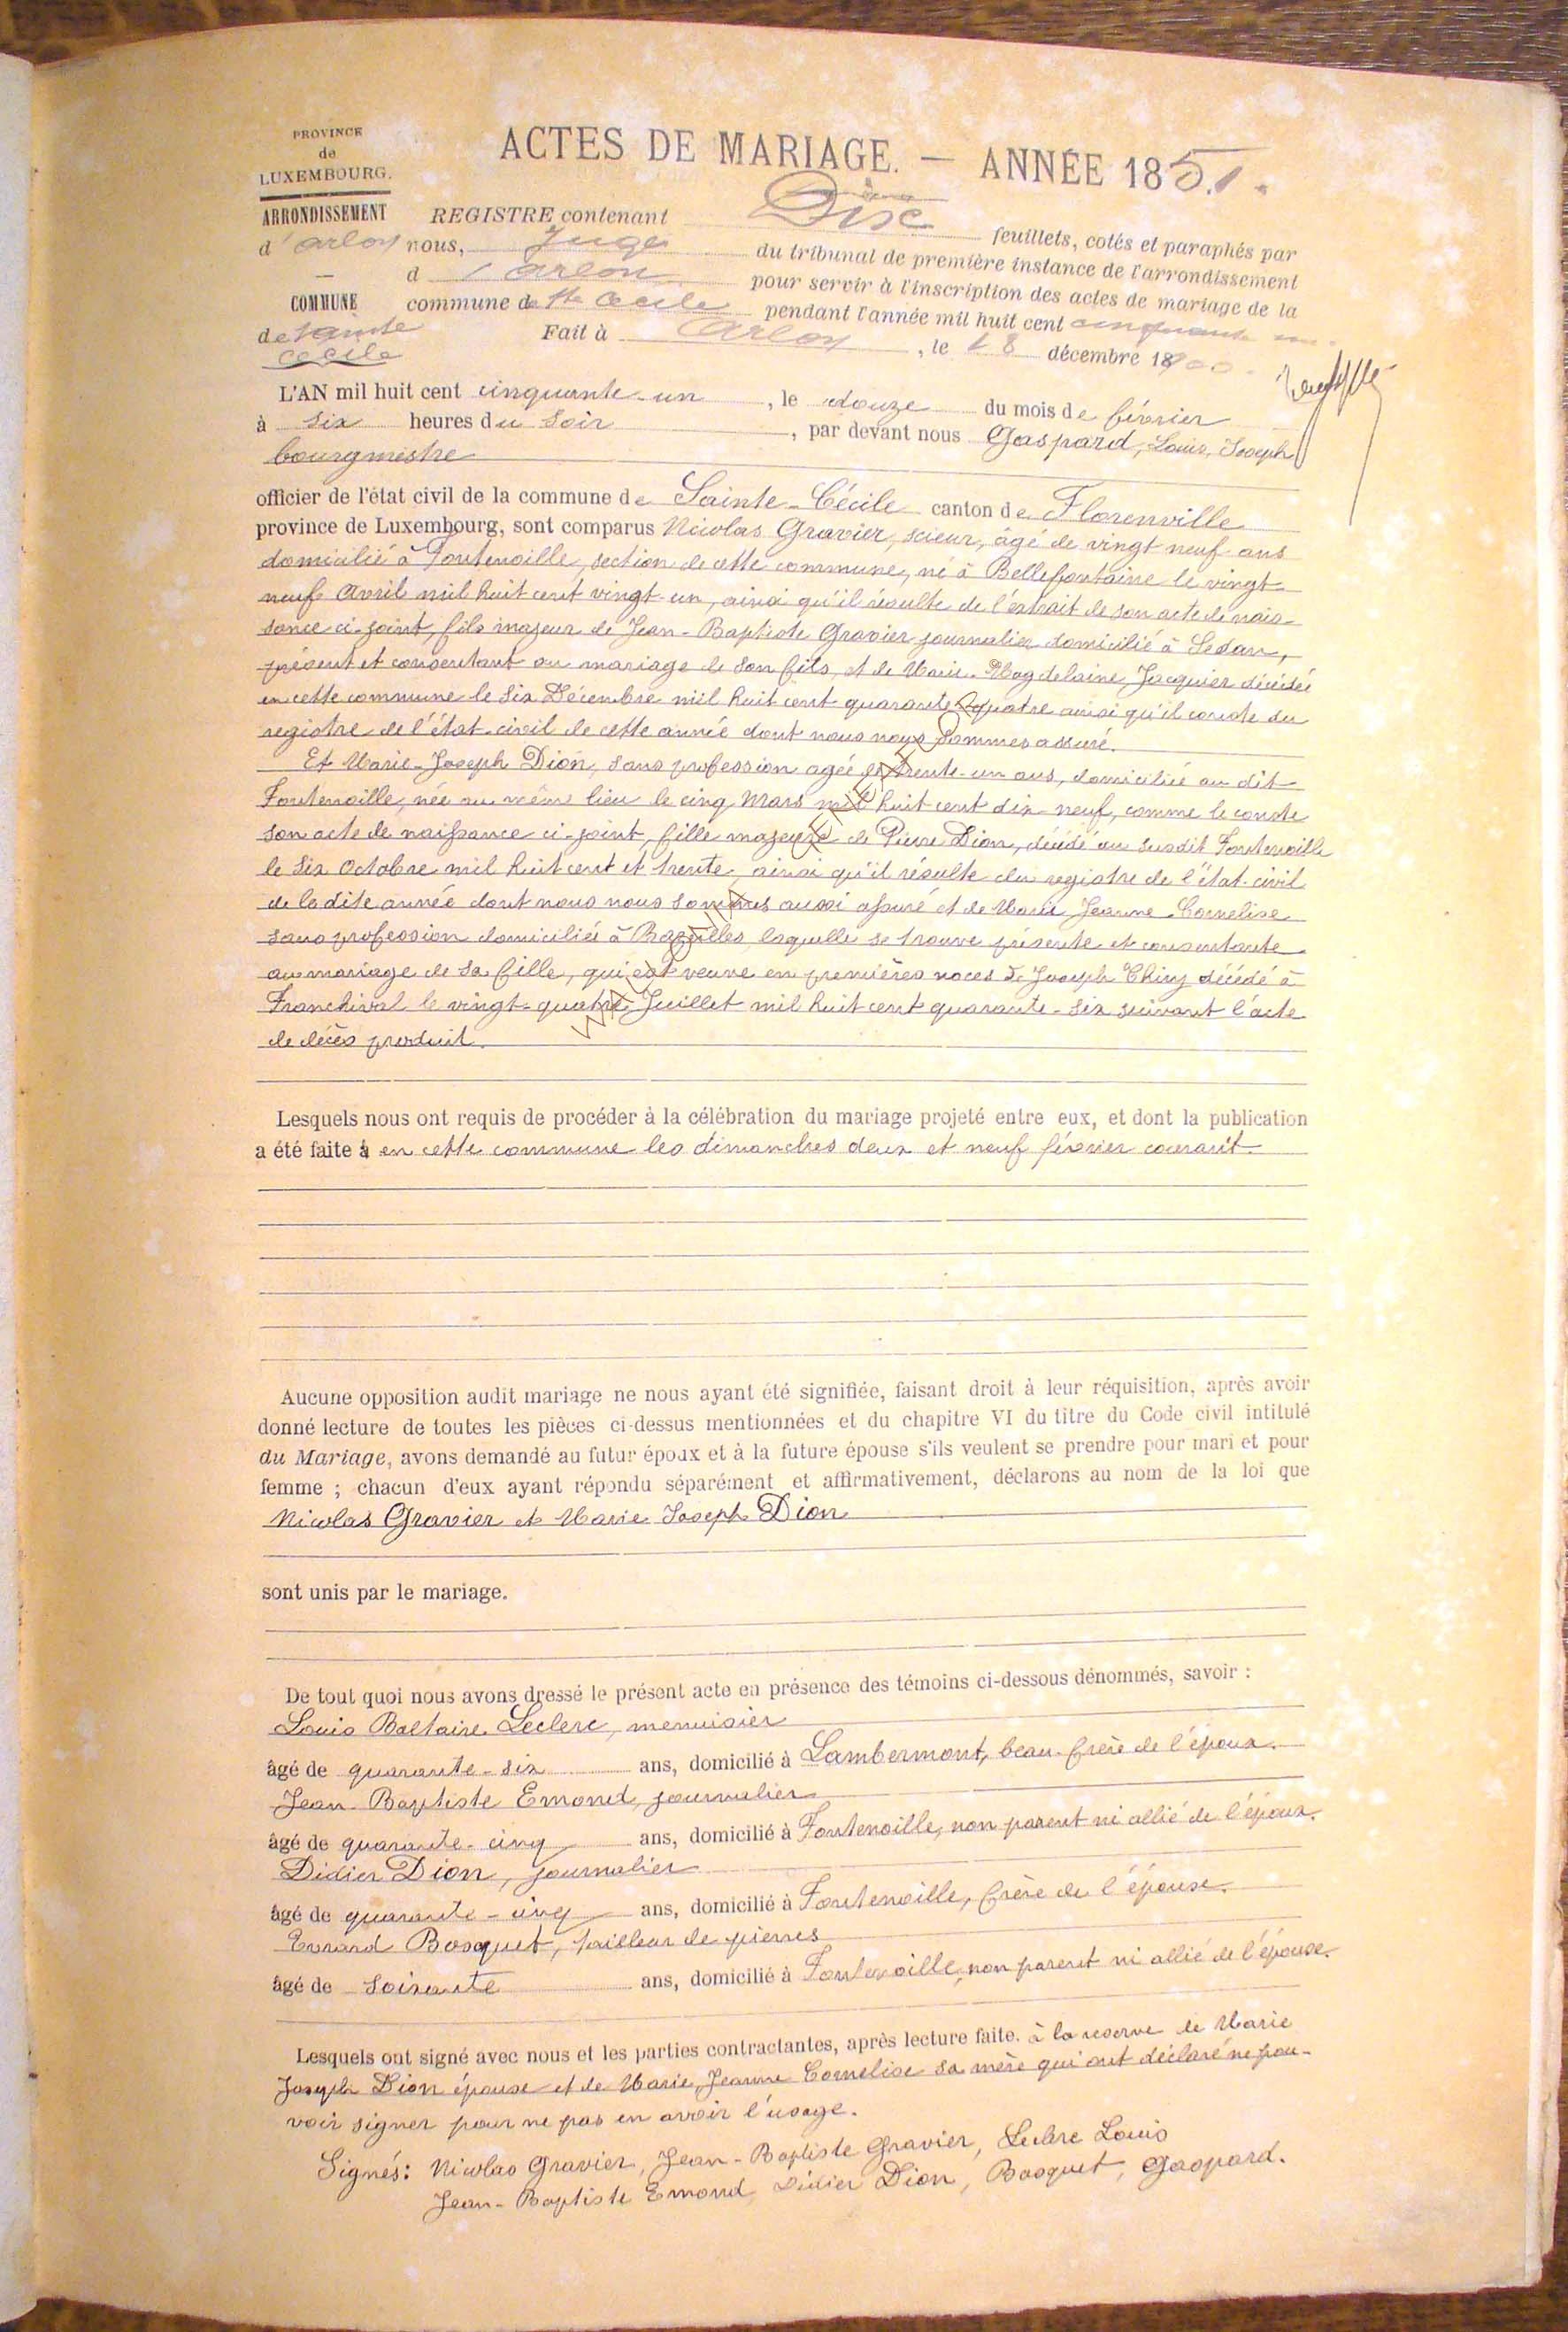 PROVINCE
de
LUXEMBOURG.
ACTES DE MARIAGE. — ANNÉE 1851.
ARRONDISSEMENT
d'Arlon
—
COMMUNE
de Sainte
Cécile
REGISTRE contenant Dix feuillets, cotés et paraphés par
nous, Juge du tribunal de première instance de l'arrondissement
d'Arlon pour servir à l'inscription des actes de mariage de la
commune de Ste Cécile pendant l'année mil huit cent cinquante un.
Fait à Arlon, le 18 décembre 1900.
L'AN mil huit cent cinquante-un, le douze du mois de février
à six heures du soir, par devant nous Gaspard, Louis, Joseph
bourgmestre
officier de l'état civil de la commune de Sainte-Cécile canton de Florenville
province de Luxembourg, sont comparus Nicolas Gravier, scieur, âgé de vingt neuf ans
domicilié à Fontenoille, section de cette commune, né à Bellefontaine le vingt
neuf Avril mil huit cent vingt-un, ainsi qu'il résulte de l'extrait de son acte de nais-
sance ci-joint, fils majeur de Jean-Baptiste Gravier journalier domicilié à Sedan,
présent et consentant au mariage de son fils, et de Marie-Magdelaine Jacquier décédée
en cette commune le six Décembre mil huit cent quarante-quatre ainsi qu'il conste du
registre de l'état-civil de cette année dont nous nous sommes assuré.
Et Marie-Joseph Dion, sans profession agée de trente-un ans, domiciliée au dit
Fontenoille, née au même lieu le cinq Mars mil huit cent dix-neuf, comme le conste
son acte de naissance ci-joint, fille majeure de Pierre Dion, décédé au susdit Fontenoille
le six Octobre mil huit cent et trente, ainsi qu'il résulte du registre de l'état-civil
de la dite année dont nous nous sommes aussi assuré et de Marie Jeanne Cornelise
sans profession domiciliée à Bazeilles laquelle se trouve présente et consentante
au mariage de sa fille, qui est veuve en premières noces de Joseph Thiry décédé à
Franchival le vingt-quatre Juillet mil huit cent quarante-six suivant l'acte
de décès produit.
Lesquels nous ont requis de procéder à la célébration du mariage projeté entre eux, et dont la publication
a été faite à en cette commune les dimanches deux et neuf février courant.
Aucune opposition audit mariage ne nous ayant été signifiée, faisant droit à leur réquisition, après avoir
donné lecture de toutes les pièces ci-dessus mentionnées et du chapitre VI du titre du Code civil intitulé
du Mariage, avons demandé au futur époux et à la future épouse s'ils veulent se prendre pour mari et pour
femme ; chacun d'eux ayant répondu séparément et affirmativement, déclarons au nom de la loi que
Nicolas Gravier et Marie Joseph Dion
sont unis par le mariage.
De tout quoi nous avons dressé le présent acte en présence des témoins ci-dessous dénommés, savoir :
Louis Baltaire Leclerc, menuisier
âgé de quarante-six ans, domicilié à Lambermont, beau-frère de l'époux.
Jean-Baptiste Emond, journalier
âgé de quarante-cinq ans, domicilié à Fontenoille, non parent ni allié de l'époux.
Didier Dion, journalier
âgé de quarante-cinq ans, domicilié à Fontenoille, frère de l'épouse.
Evrard Bosquet, tailleur de pierres
âgé de soixante ans, domicilié à Fontenoille, non parent ni allié de l'épouse.
Lesquels ont signé avec nous et les parties contractantes, après lecture faite. à la reserve de Marie
Joseph Dion épouse et de Marie Jeanne Cornelise sa mère qui ont déclaré ne pou-
voir signer pour ne pas en avoir l'usage.
Signés: Nicolas Gravier, Jean-Baptiste Gravier, Leclerc Louis
Jean-Baptiste Emond, Didier Dion, Bosquet, Gaspard.